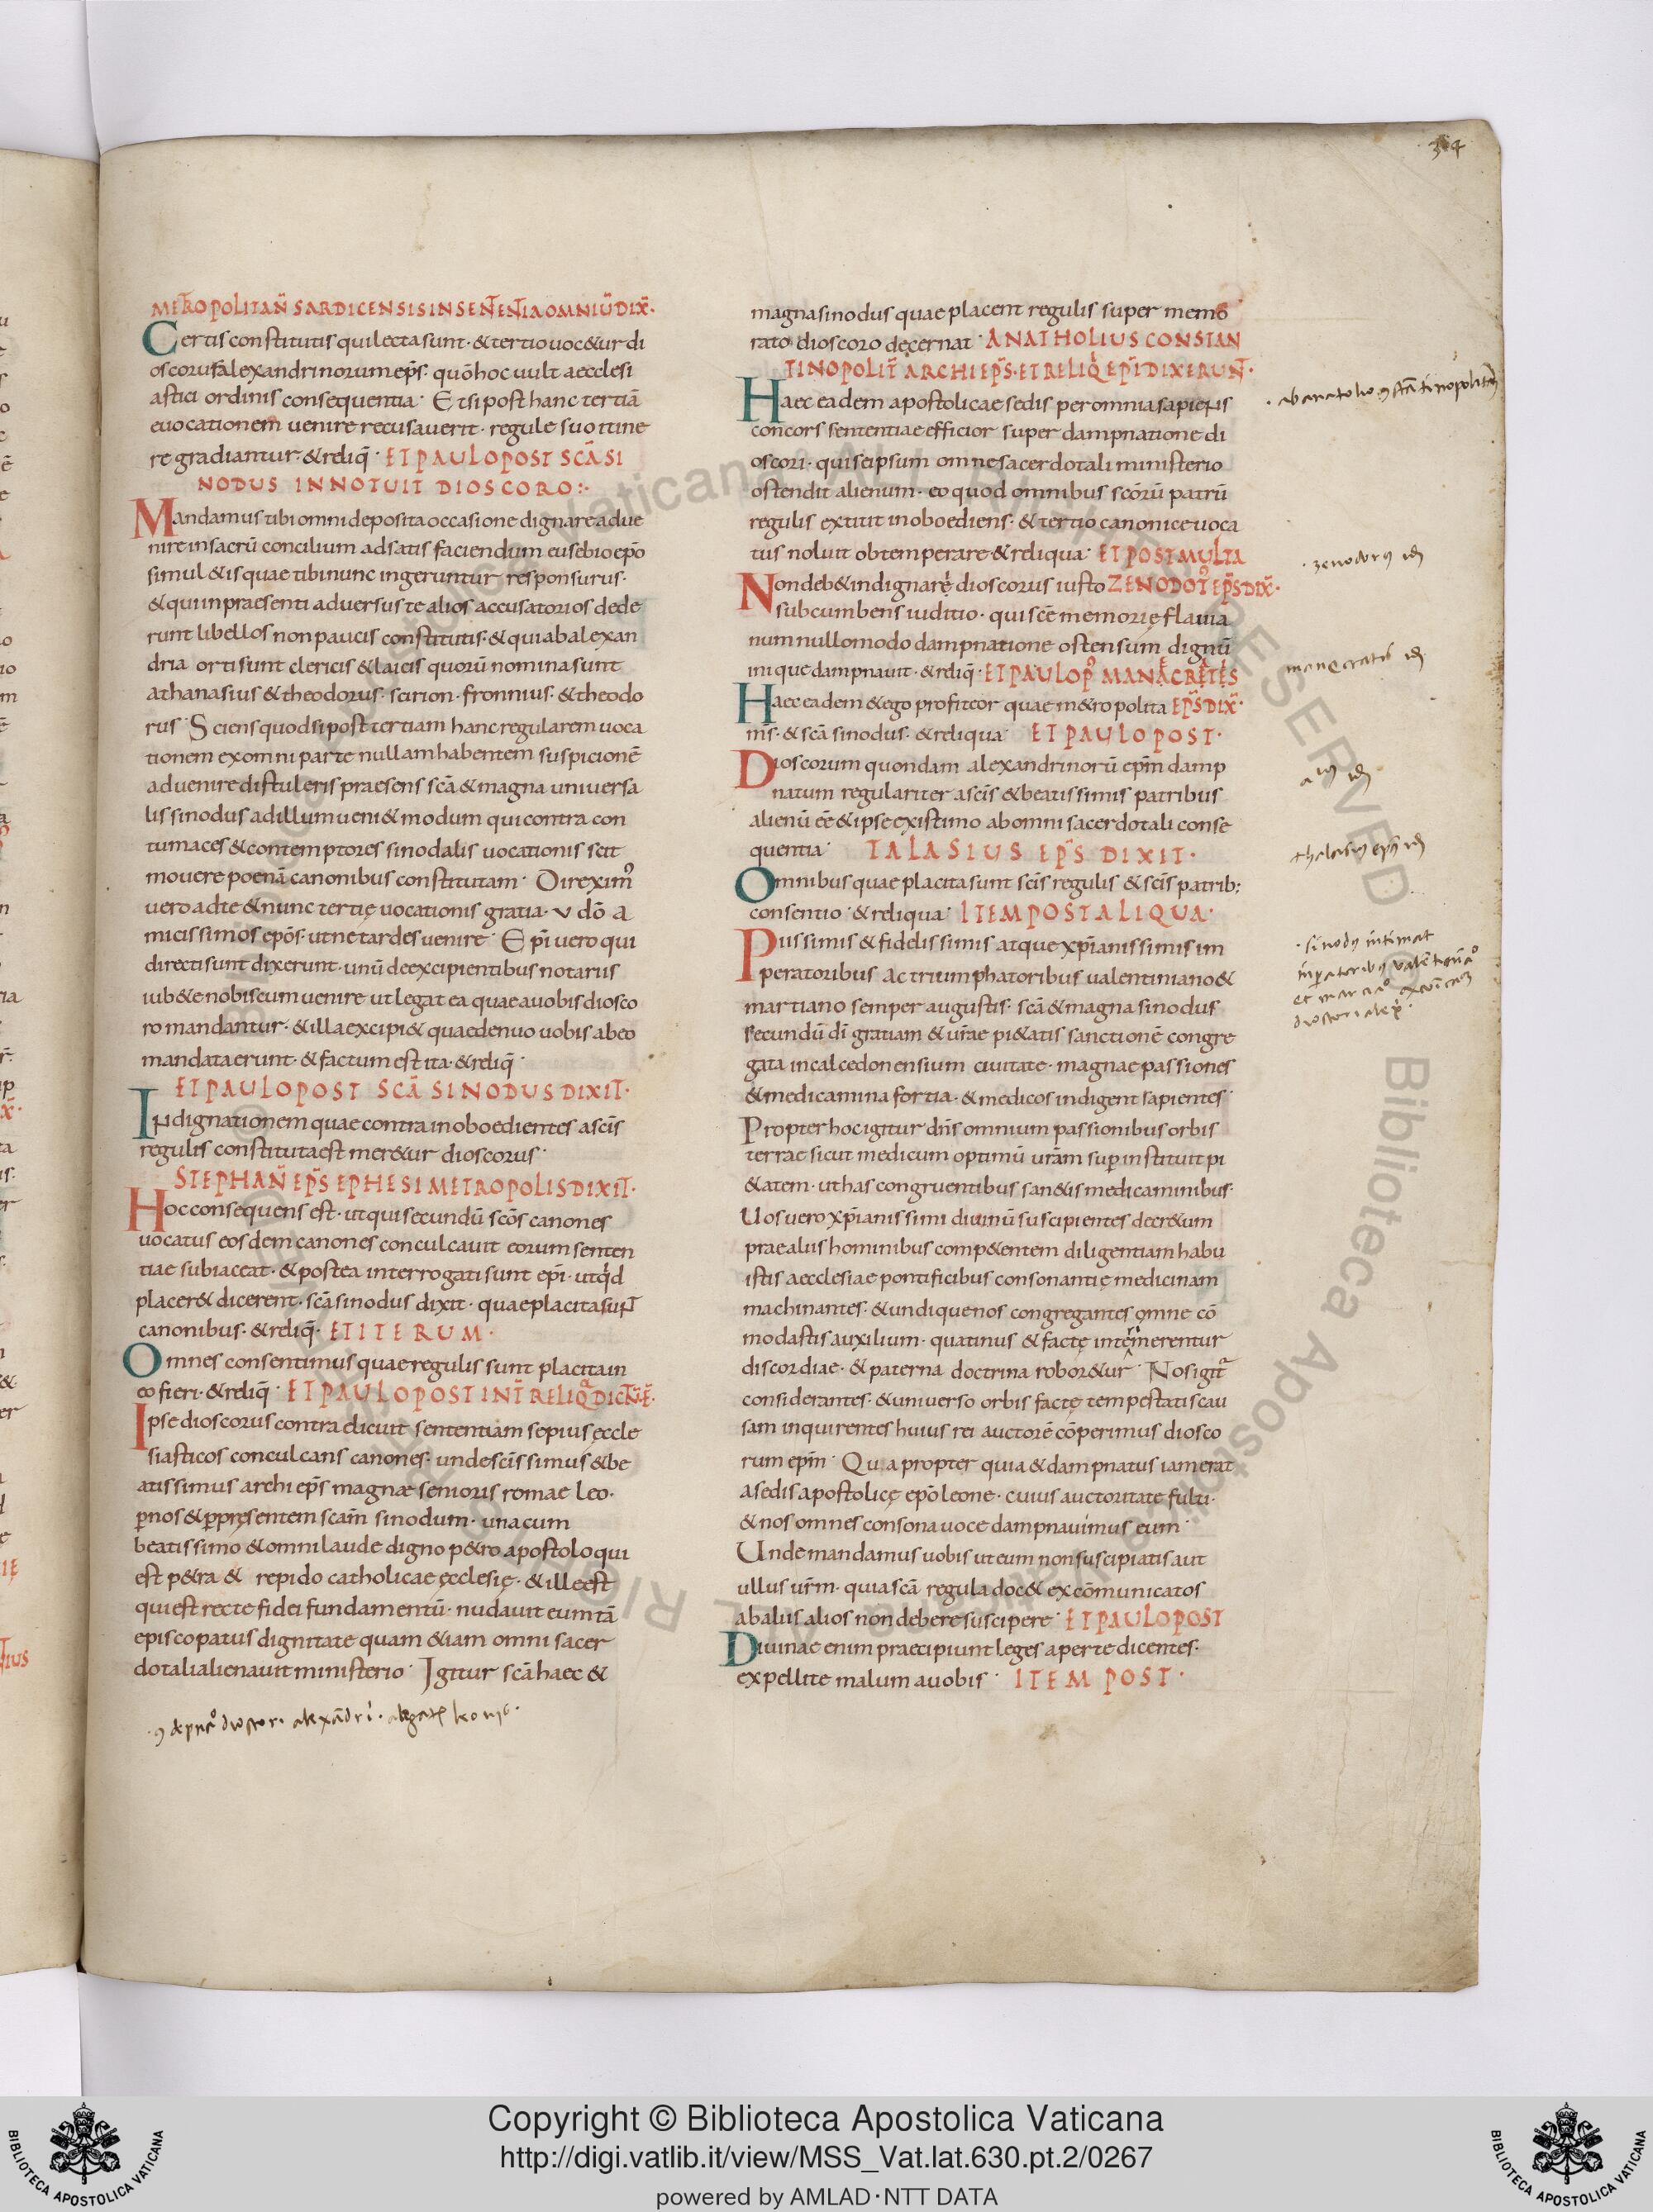 314
METROPOLITAÑ SARDICENSIS IN SENTENTIA OMNIŪ DIX̄.
Certis constitutis qui lecta sunt · & tertio uoc&ur di
oscorus alexandrinorum ep̄s · quō hoc uult aecclesi
astici ordinis consequentia · Et si post hanc tertiā
euocationem uenire recusauerit · regule suo itine
re gradiantur · & reliq̄ · ET PAULO POST SCĀ SI
NODUS INNOTUIT DIOSCORO:·
Mandamus tibi omni deposita occasione dignare adue
nire in sacrū concilium ad satis faciendum eusebio ep̄o
simul & is quae tibi nunc ingeruntur responsurus ·
& qui in praesenti aduersus te alios accusatorios dede
runt libellos non paucis constitutis · & qui ab alexan
dria orti sunt clericis & laicis quorū nomina sunt
athanasius & theodorus · scirion · fronnius · & theodo
rus · Sciens quod si post tertiam hanc regularem uoca
tionem ex omni parte nullam habentem suspicionē
aduenire distuleris praesens scā & magna uniuersa
lis sinodus ad illum ueni& modum qui contra con
tumaces & contemptores sinodalis uocationis scit
mouere poenā canonibus constitutam · Direxim᾿
uero ad te & nunc tertię uocationis gratia · v dō a
micissimos ep̄os · ut ne tardes uenire · Ep̄i uero qui
directi sunt dixerunt · unū de excipientibus notarus
iub&e nobiscum uenire ut legat ea quae a uobis diosco
ro mandantur · & illa excipi& quae denuo uobis ab eo
mandata erunt · & factum est ita · & reliq̄ ·
ET PAULO POST SCĀ SINODUS DIXIT·
Ip̄ dignationem quae contra inoboedientes a sc̄is
regulis constituta est mer&ur dioscorus ·
STEPHAÑ EP̄S EPHESI METROPOLIS DIXIT·
Hoc consequens est · ut qui secundū scōs canones
uocatus eosdem canones conculcauit eorum senten
tiae subiaceat · & postea interrogati sunt ep̄i · ut qd
placer& dicerent · scā sinodus dixit · quae placita sunt
canonibus · & reliq̄ · ET ITERUM ·
Omnes consentimus quae regulis sunt placita in
eo fieri · & reliq̄ · ET PAULO POST INT̄ RELIQ̄ DICT̄. Ē.
Ipse dioscorus contra dicuit sententiam sepius eccle
siasticos conculcans canones · unde sc̄issimus & be
atissimus archi ep̄s magnae senioris romae leo ·
p̄ nos & p̄ pręsentem scam̄ sinodum · una cum
beatissimo & omni laude digno p&ro apostolo qui
est p&ra & repido catholicae ęcclesię · & ille est
qui est recte fidei fundamentū · nudauit eum tā
episcopatus dignitate quam &iam omni sacer
dotali alienauit ministerio · Igitur scā haec &
magna sinodus quae placent regulis super memo
rato dioscoro decernat · ANATHOLIUS CONSTAN
TINOPOLIT̄ ARCHIEP̄S · ET RELIQ̄ EP̄I DIXERUNT·
Haec eadem apostolicae sedis per omnia sapiens
concors sententiae efficior super dampnatione di
oscori · qui seipsum omne sacerdotali ministerio
ostendit alienum · eo quod omnibus scōrū patrū
regulis extitit inoboediens · & tertio canonice uoca
tus noluit obtemperare · & reliqua · ET POST MULTA
Non deb& indignare dioscorus iusto ZENODOT᾿ EP̄S DIX̄·
subcumbens iuditio · qui scē memorię flauia
num nullomodo dampnatione ostensum dignū
inique dampnauit · & reliq̄ · ET PAULO P᾿ MANACRETES
Haec eadem & ego profiteor quae m&ropolita EP̄S DIX̄·
nīs · & scā sinodus · & reliqua · ET PAULO POST ·
Dioscorum quondam alexandrinorū ep̄m damp
natum regulariter a sc̄is & beatissimis patribus
alienū eē & ipse existimo ab omni sacerdotali conse
quentia · TALASIUS EP̄S DIXIT·
Omnibus quae placita sunt sc̄is regulis & sc̄is patrib;
consentio · & reliqua · ITEM POST ALIQUA·
Piissimis & fidelissimis atque xp̄ianissimis im
peratoribus ac triumphatoribus ualentiniano &
martiano semper augustis · scā & magna sinodus
secundū dī gratiam & ur̄ae pi&atis sanctionē congre
gata in calcedonensium ciuitate · magnae passiones
& medicamina fortia · & medicos indigent sapientes ·
Propter hoc igitur dn̄s omnium passionibus orbis
terrae sicut medicum optimū ur̄am sup̄ instituit pi
&atem · ut has congruentibus san&is medicaminibus ·
Uos uero xp̄ianissimi diuinū suscipientes decr&um
prae aliis hominibus comp&entem diligentiam habu
istis aecclesiae pontificibus consonantię medicinam
machinantes · & undique nos congregantes omne cō
modastis auxilium · quatinus & factę interimerentur
discordiae · & paterna doctrina robor&ur · Nos igit᾿
considerantes · & uniuerso orbis factę tempestatis cau
sam inquirentes huius rei auctorē cōperimus diosco
rum ep̄m · Qua propter quia & dampnatus iam erat
a sedis apostolicę ep̄o leone · cuius auctoritate fulti ·
& nos omnes consona uoce dampnauimus eum ·
Unde mandamus uobis ut eum non suscipiatis aut
ullus ur̄m · quia scā regula doc& excōmunicatos
ab aliis alios non debere suscipere · ET PAULO POST
Diuinae enim praecipiunt leges aperte dicentes ·
expellite malum a uobis · ITEM POST ·
Copyright © Biblioteca Apostolica Vaticana
http://digi.vatlib.it/view/MSS_Vat.lat.630.pt.2/0267
powered by AMLAD·NTT DATA
BIBLIOTECA APOSTOLICA VATICANA
BIBLIOTECA APOSTOLICA VATICANA